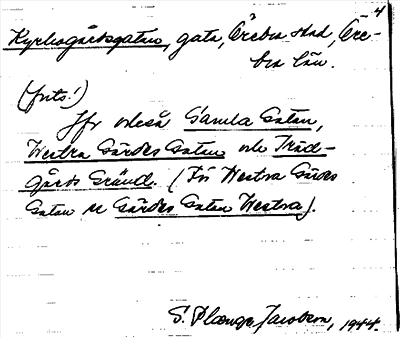 4
Kyrkogårdsgatan, gata, Örebro stad, Öre-
bro län.
(forts.)
Jfr också Gamla Gatan,
Westra Gårdes Gatan och Träd-
gårds Gränd. (För Westra Gårdes
Gatan se Gårdes Gatan Westra).
S. Plaenge Jacobson, 1944.